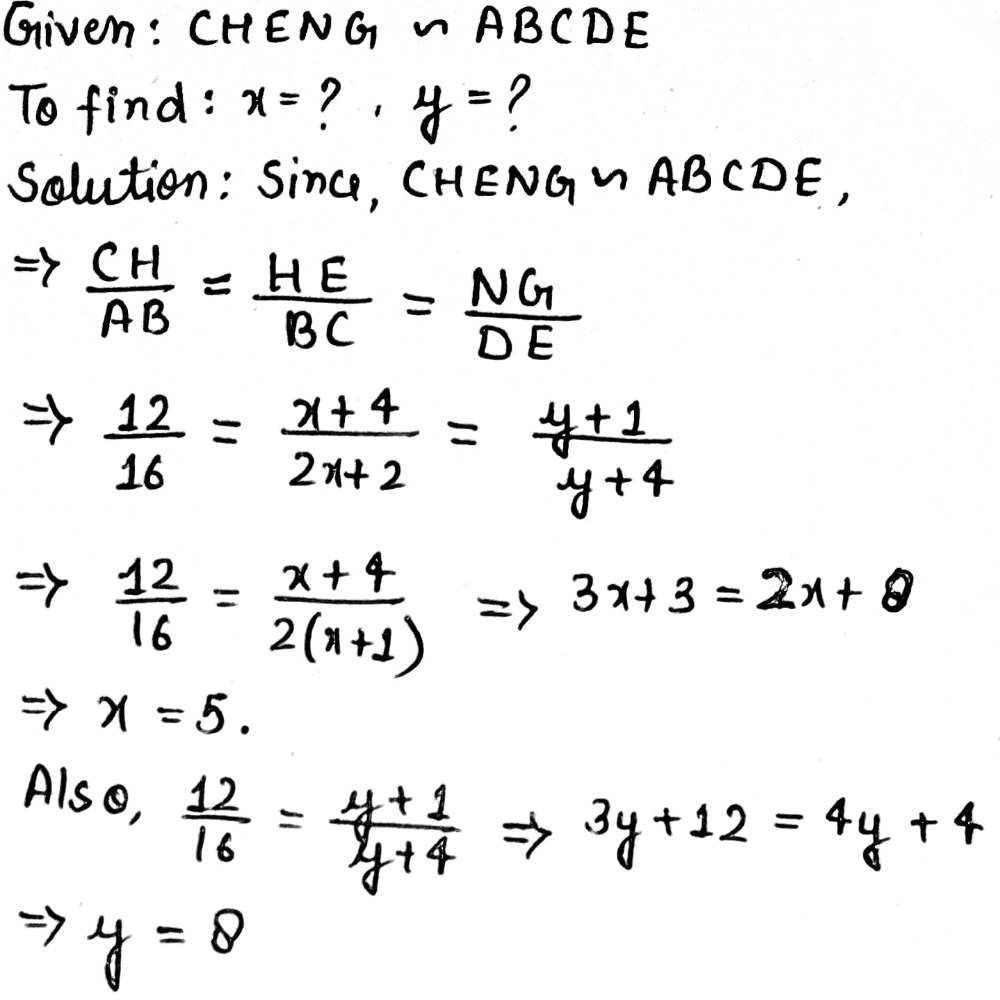 Given: CHENG ∽ ABCDE
To find: x = ? , y = ?
Solution: Since, CHENG ∽ ABCDE,
=> CH/AB = HE/BC = NG/DE
=> 12/16 = x+4/2x+2 = y+1/y+4
=> 12/16 = x+4/2(x+1) => 3x+3 = 2x+8
=> x = 5.
Also, 12/16 = y+1/y+4 => 3y+12 = 4y+4
=> y = 8